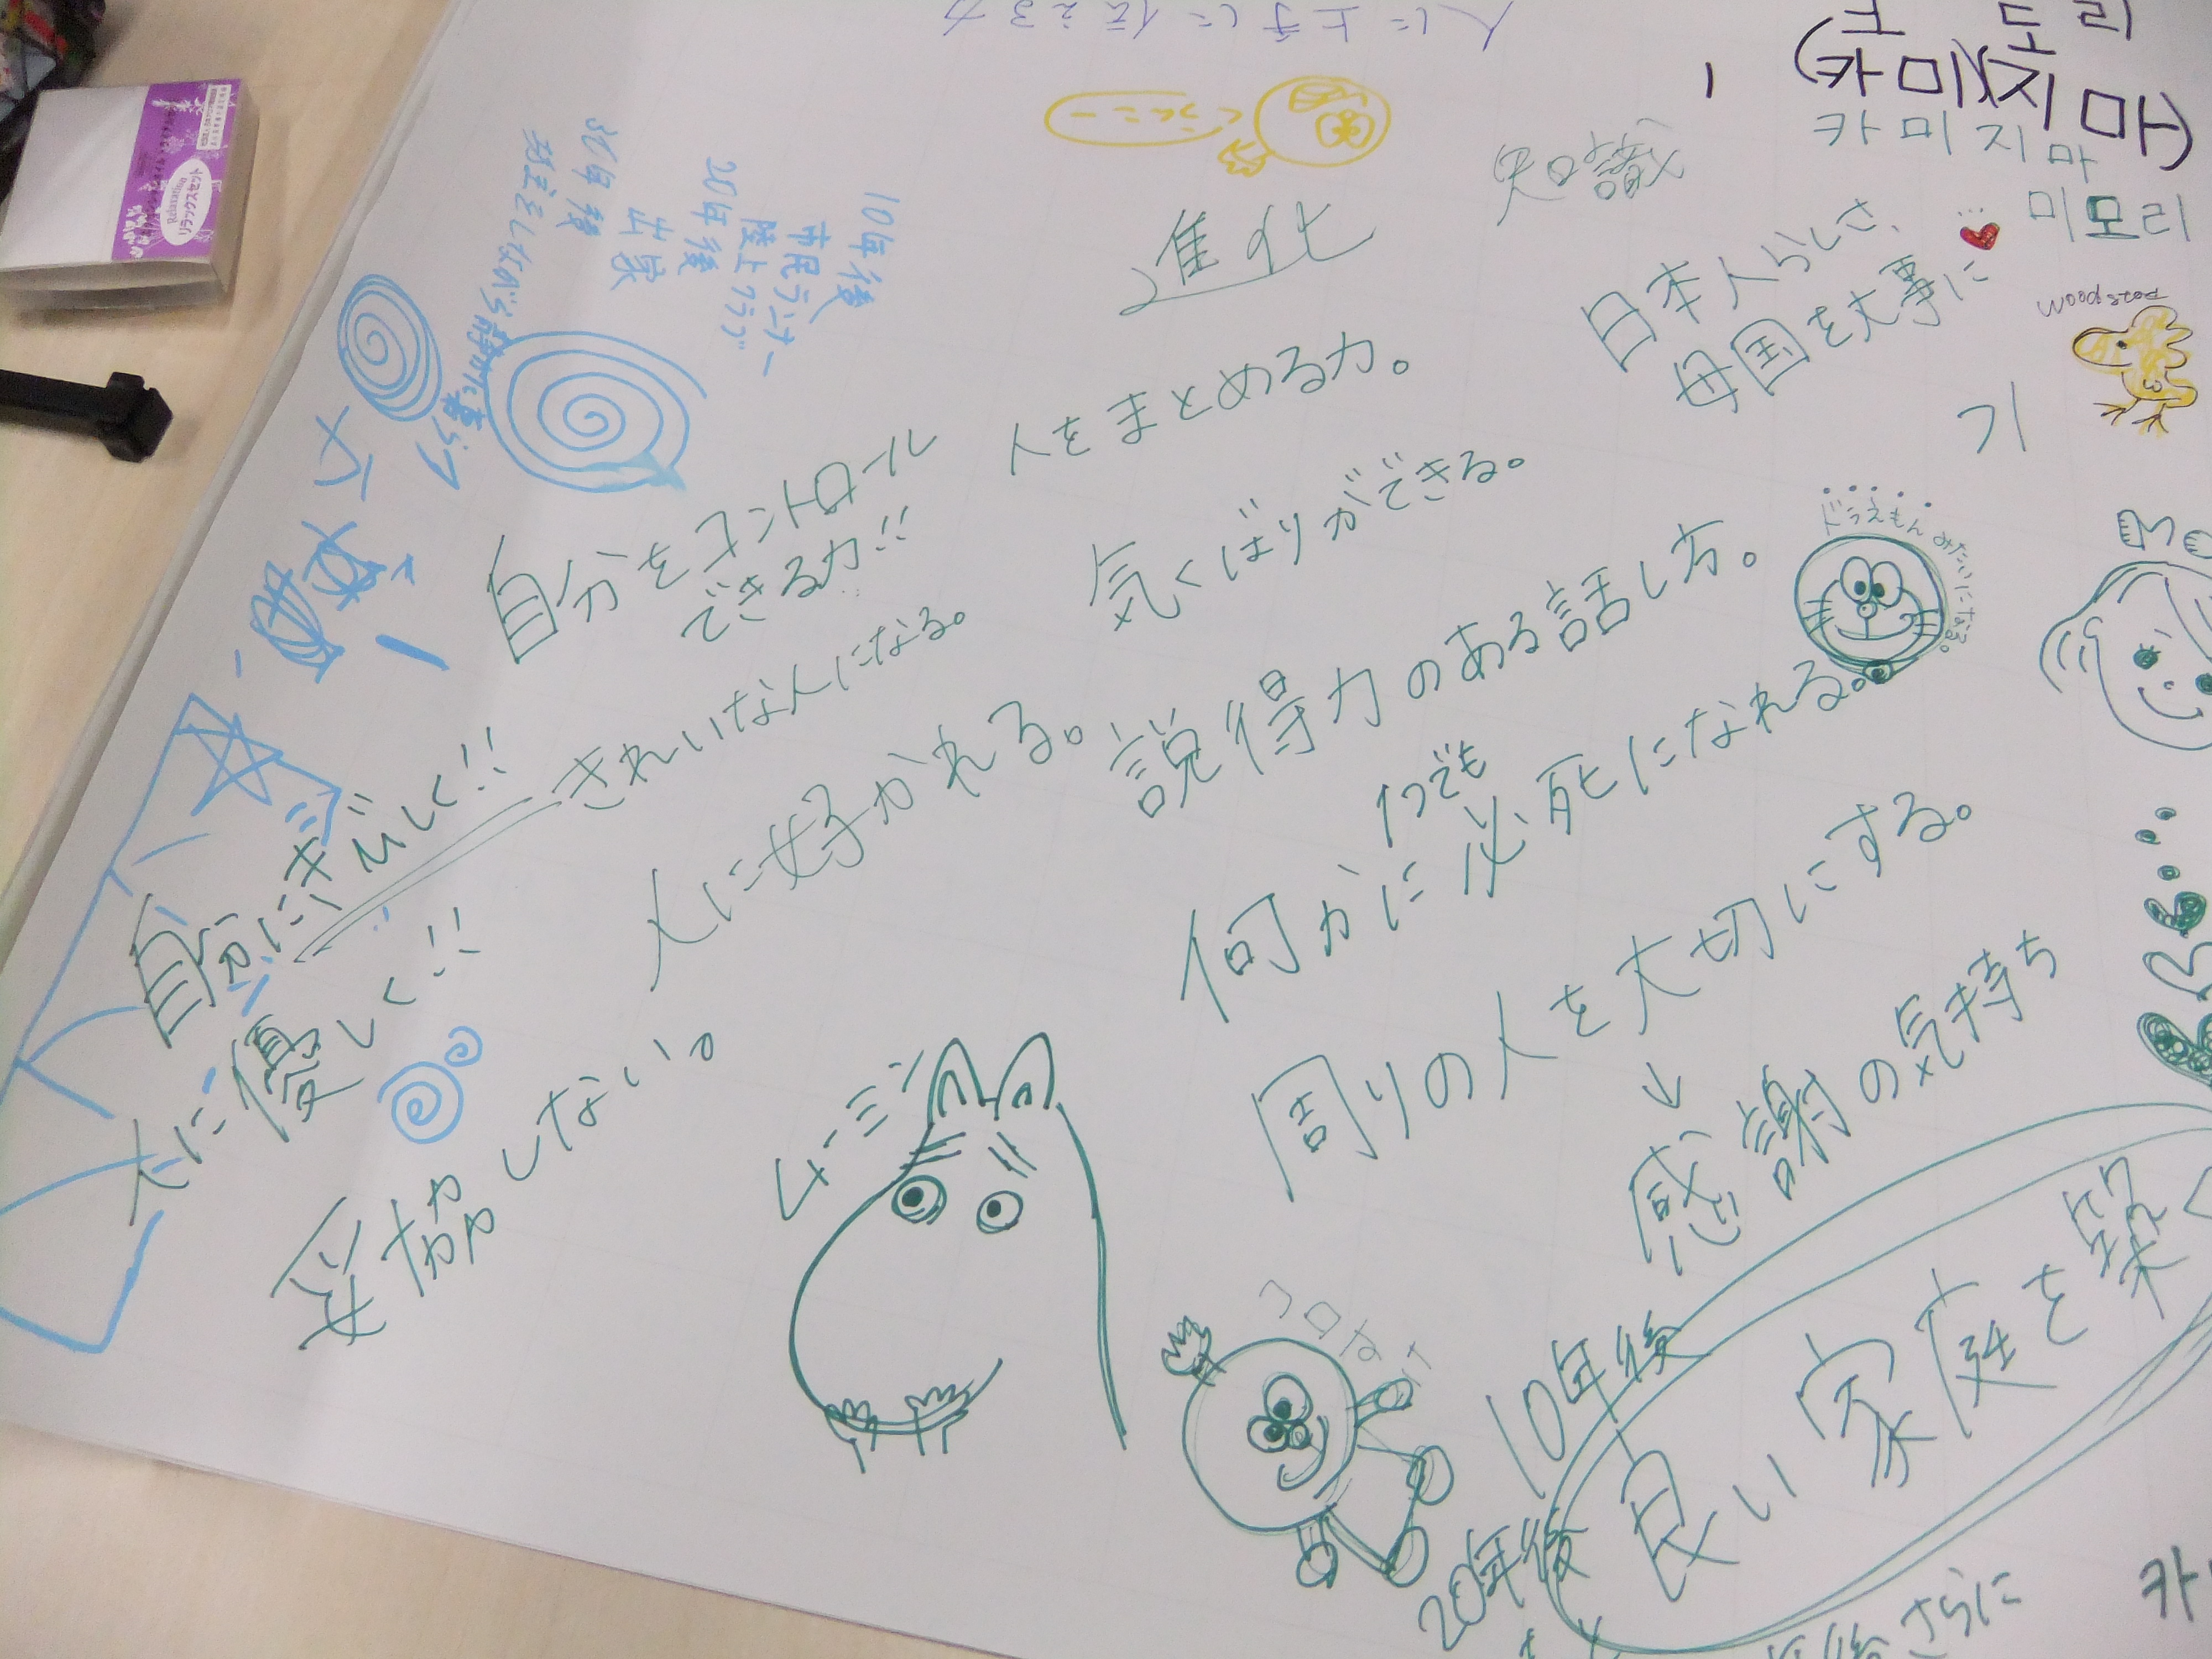 人に上手に伝える力
도리
(카미(지마)
카미지마
미모리
知識
進化
日本人らしさ、
母国を大事に
woodstock
기
10年後
市民ランナー
陸上クラブ
20年後
出家
30年後
リラックスセット
Relaxation
人をまとめる力。
自分をコントロール
できる力!!
気くばりができる。
ドラえもんみたいになる。
きれいな人になる。
説得力のある話し方。
人に好かれる。
1つでも
何かに必死になれる。
自分にきびしく!!
人に優しく!!
周りの人を大切にする。
↓
感謝の気持ち
妥協しない。
ムーミン
10年後
良い家庭を築
20年後
さらに